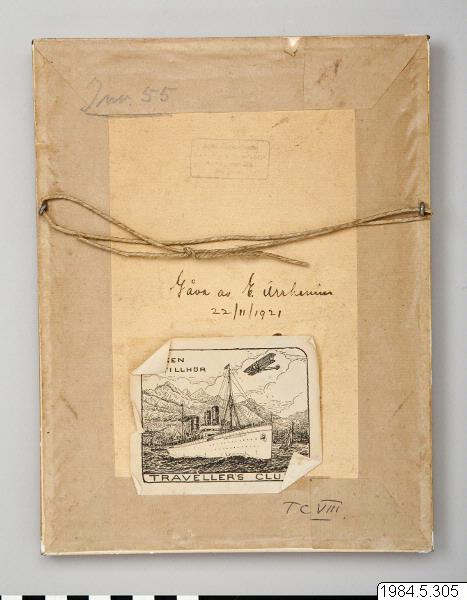 Inv. 55
Gåva av E. Arrhenius
22/11/1921
TILLHÖR
TRAVELLER'S CLU
TC VIII
1984.5.305